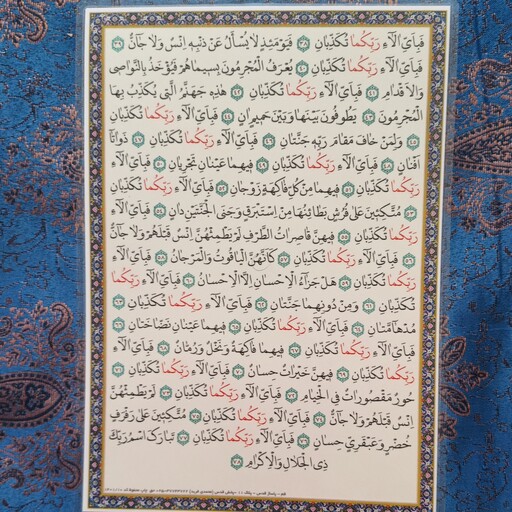 فَبِأَيِّ آلَاءِ رَبِّكُمَا تُكَذِّبَانِ ٣٨ فَيَوْمَئِذٍ لَا يُسْأَلُ عَنْ ذَنْبِهِ إِنْسٌ وَلَا جَانٌّ ٣٩
فَبِأَيِّ آلَاءِ رَبِّكُمَا تُكَذِّبَانِ ٤٠ يُعْرَفُ الْمُجْرِمُونَ بِسِيمَاهُمْ فَيُؤْخَذُ بِالنَّوَاصِي
وَالْأَقْدَامِ ٤١ فَبِأَيِّ آلَاءِ رَبِّكُمَا تُكَذِّبَانِ ٤٢ هَذِهِ جَهَنَّمُ الَّتِي يُكَذِّبُ بِهَا
الْمُجْرِمُونَ ٤٣ يَطُوفُونَ بَيْنَهَا وَبَيْنَ حَمِيمٍ آنٍ ٤٤ فَبِأَيِّ آلَاءِ رَبِّكُمَا تُكَذِّبَانِ
٤٥ وَلِمَنْ خَافَ مَقَامَ رَبِّهِ جَنَّتَانِ ٤٦ فَبِأَيِّ آلَاءِ رَبِّكُمَا تُكَذِّبَانِ ٤٧ ذَوَاتَا
أَفْنَانٍ ٤٨ فَبِأَيِّ آلَاءِ رَبِّكُمَا تُكَذِّبَانِ ٤٩ فِيهِمَا عَيْنَانِ تَجْرِيَانِ ٥٠ فَبِأَيِّ آلَاءِ
رَبِّكُمَا تُكَذِّبَانِ ٥١ فِيهِمَا مِنْ كُلِّ فَاكِهَةٍ زَوْجَانِ ٥٢ فَبِأَيِّ آلَاءِ رَبِّكُمَا تُكَذِّبَانِ
٥٣ مُتَّكِئِينَ عَلَى فُرُشٍ بَطَائِنُهَا مِنْ إِسْتَبْرَقٍ وَجَنَى الْجَنَّتَيْنِ دَانٍ ٥٤ فَبِأَيِّ
آلَاءِ رَبِّكُمَا تُكَذِّبَانِ ٥٥ فِيهِنَّ قَاصِرَاتُ الطَّرْفِ لَمْ يَطْمِثْهُنَّ إِنْسٌ قَبْلَهُمْ وَلَا جَانٌّ
٥٦ فَبِأَيِّ آلَاءِ رَبِّكُمَا تُكَذِّبَانِ ٥٧ كَأَنَّهُنَّ الْيَاقُوتُ وَالْمَرْجَانُ ٥٨ فَبِأَيِّ آلَاءِ
رَبِّكُمَا تُكَذِّبَانِ ٥٩ هَلْ جَزَاءُ الْإِحْسَانِ إِلَّا الْإِحْسَانُ ٦٠ فَبِأَيِّ آلَاءِ رَبِّكُمَا
تُكَذِّبَانِ ٦١ وَمِنْ دُونِهِمَا جَنَّتَانِ ٦٢ فَبِأَيِّ آلَاءِ رَبِّكُمَا تُكَذِّبَانِ ٦٣
مُدْهَامَّتَانِ ٦٤ فَبِأَيِّ آلَاءِ رَبِّكُمَا تُكَذِّبَانِ ٦٥ فِيهِمَا عَيْنَانِ نَضَّاخَتَانِ ٦٦
فَبِأَيِّ آلَاءِ رَبِّكُمَا تُكَذِّبَانِ ٦٧ فِيهِمَا فَاكِهَةٌ وَنَخْلٌ وَرُمَّانٌ ٦٨ فَبِأَيِّ آلَاءِ
رَبِّكُمَا تُكَذِّبَانِ ٦٩ فِيهِنَّ خَيْرَاتٌ حِسَانٌ ٧٠ فَبِأَيِّ آلَاءِ رَبِّكُمَا تُكَذِّبَانِ ٧١
حُورٌ مَقْصُورَاتٌ فِي الْخِيَامِ ٧٢ فَبِأَيِّ آلَاءِ رَبِّكُمَا تُكَذِّبَانِ ٧٣ لَمْ يَطْمِثْهُنَّ
إِنْسٌ قَبْلَهُمْ وَلَا جَانٌّ ٧٤ فَبِأَيِّ آلَاءِ رَبِّكُمَا تُكَذِّبَانِ ٧٥ مُتَّكِئِينَ عَلَى رَفْرَفٍ
خُضْرٍ وَعَبْقَرِيٍّ حِسَانٍ ٧٦ فَبِأَيِّ آلَاءِ رَبِّكُمَا تُكَذِّبَانِ ٧٧ تَبَارَكَ اسْمُ رَبِّكَ
ذِي الْجَلَالِ وَالْإِكْرَامِ ٧٨